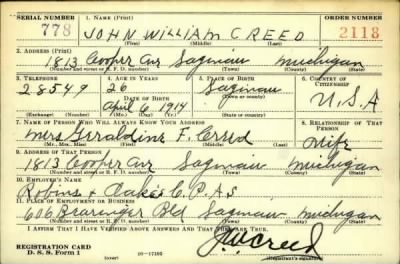 SERIAL NUMBER 1. NAME (Print) ORDER NUMBER
778 JOHN WILLIAM CREED 2118
(First) (Middle) (Last)
2. ADDRESS (Print)
1813 Cooper Ave Saginaw Michigan
(Number and street or R. F. D. number) (Town) (County) (State)
3. TELEPHONE 4. AGE IN YEARS 5. PLACE OF BIRTH 6. COUNTRY OF CITIZENSHIP
28549 26 Saginaw U.S.A
DATE OF BIRTH (Town or county)
April 6 1914
(Exchange) (Number) (Mo.) (Day) (Yr.) (State or country)
7. NAME OF PERSON WHO WILL ALWAYS KNOW YOUR ADDRESS 8. RELATIONSHIP OF THAT PERSON
Mrs Geraldine F. Creed Wife
(Mr., Mrs., Miss) (First) (Middle) (Last)
9. ADDRESS OF THAT PERSON
1813 Cooper Ave Saginaw Michigan
(Number and street or R. F. D. number) (Town) (County) (State)
10. EMPLOYER'S NAME
Robins + Oakes C.P.A.S.
11. PLACE OF EMPLOYMENT OR BUSINESS
606 Bearinger Bld Saginaw Michigan
(Number and street or R. F. D. number) (Town) (County) (State)
I AFFIRM THAT I HAVE VERIFIED ABOVE ANSWERS AND THAT THEY ARE TRUE.
J W Creed
REGISTRATION CARD
D. S. S. Form 1 (over) 16—17105 (Registrant's signature)